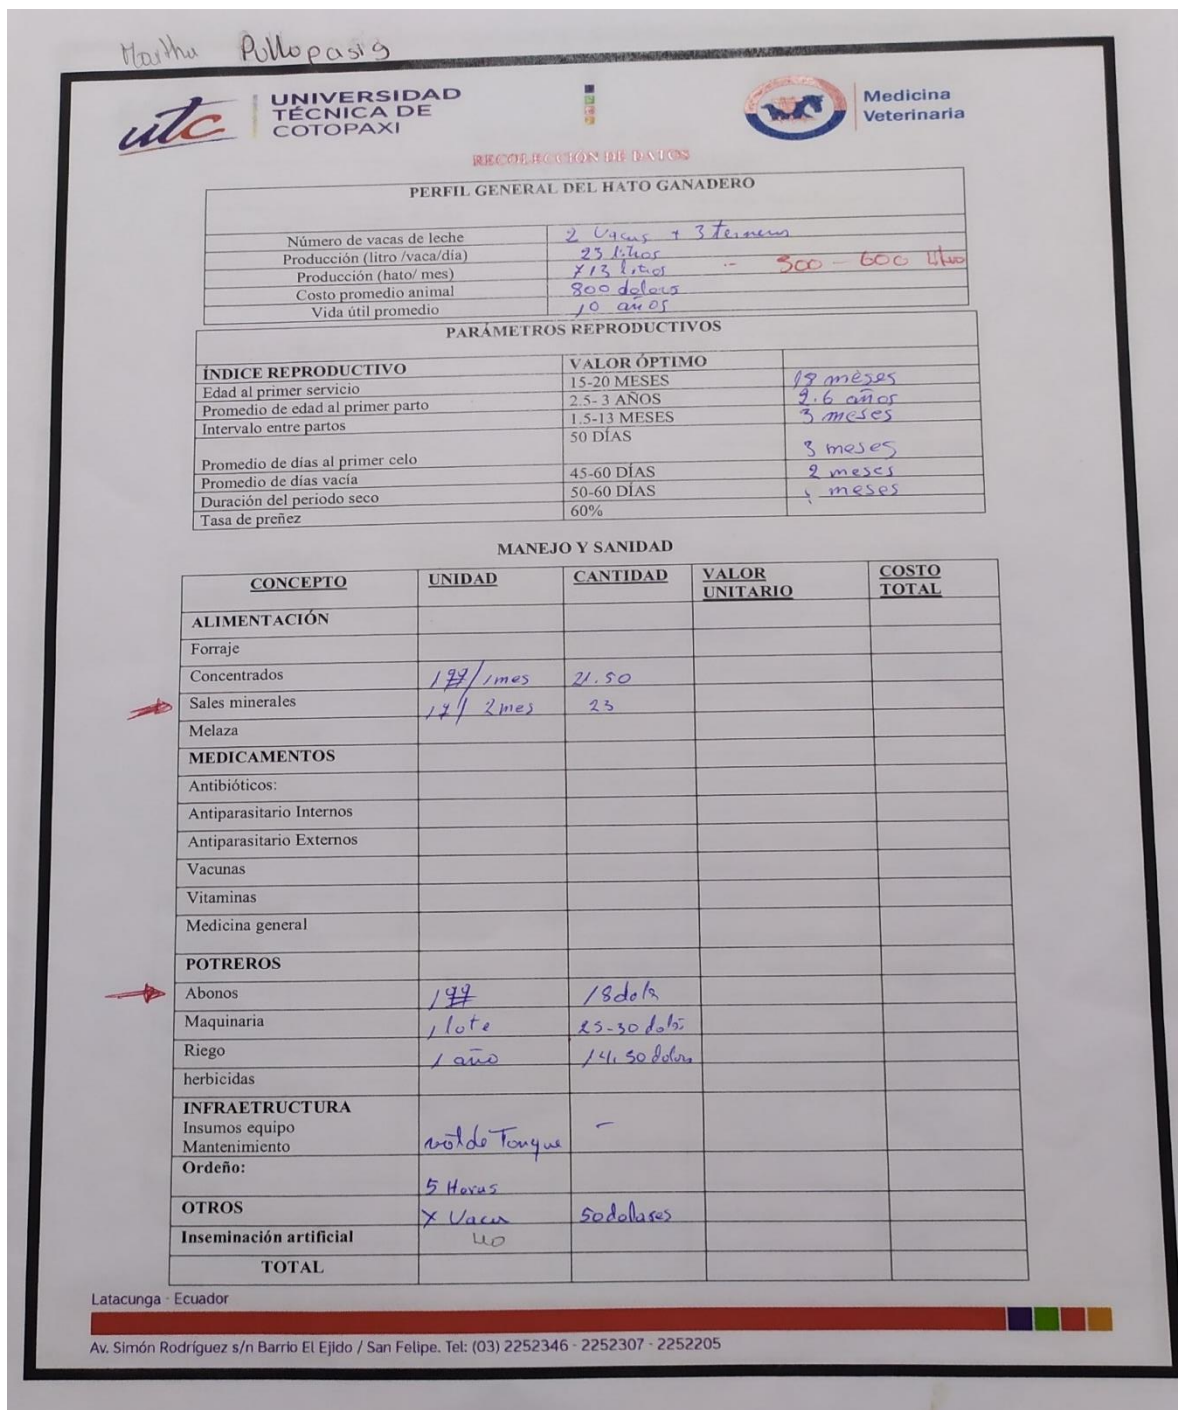 Martha Pullopasig
utc UNIVERSIDAD TÉCNICA DE COTOPAXI
Medicina Veterinaria
RECOLECCIÓN DE DATOS
PERFIL GENERAL DEL HATO GANADERO
Número de vacas de leche 2 Vacas + 3 terneros
Producción (litro /vaca/día) 23 litros
Producción (hato/ mes) 713 litros 300 - 600 litro
Costo promedio animal 800 dolars
Vida útil promedio 10 años
PARÁMETROS REPRODUCTIVOS
ÍNDICE REPRODUCTIVO VALOR ÓPTIMO
Edad al primer servicio 15-20 MESES 18 meses
Promedio de edad al primer parto 2.5- 3 AÑOS 2.6 años
Intervalo entre partos 1.5-13 MESES 3 meses
Promedio de días al primer celo 50 DÍAS 3 meses
Promedio de días vacía 45-60 DÍAS 2 meses
Duración del periodo seco 50-60 DÍAS meses
Tasa de preñez 60%
MANEJO Y SANIDAD
CONCEPTO UNIDAD CANTIDAD VALOR UNITARIO COSTO TOTAL
ALIMENTACIÓN
Forraje
Concentrados /1mes 21.50
Sales minerales 2mes 23
Melaza
MEDICAMENTOS
Antibióticos:
Antiparasitario Internos
Antiparasitario Externos
Vacunas
Vitaminas
Medicina general
POTREROS
Abonos 18
Maquinaria 1 lote 25-30
Riego 1 año 14.50
herbicidas
INFRAETRUCTURA
Insumos equipo -
Mantenimiento de Tonque
Ordeño:
5 Horas
OTROS X Vaca 50 dolares
Inseminación artificial no
TOTAL
Latacunga - Ecuador
Av. Simón Rodríguez s/n Barrio El Ejido / San Felipe. Tel: (03) 2252346 - 2252307 - 2252205